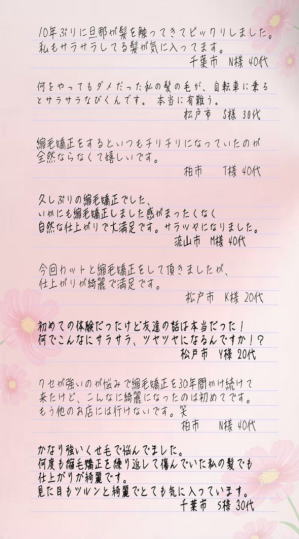 10年ぶりに旦那が髪を触ってきてビックリしました。
私もサラサラしてる髪が気に入ってます。
千葉市　N様 40代
何をやってもダメだった私の髪の毛が、自転車に乗る
とサラサラなびくんです。 本当に有難う。
松戸市　S様 30代
縮毛矯正をするといつもチリチリになっていたのが
全然ならなくて嬉しいです。
柏市　T様 40代
久しぶりの縮毛矯正でした、
いかにも縮毛矯正しました感がまったくなく
自然な仕上がりで大満足です。サラツヤになりました。
流山市　M様 40代
今回カットと縮毛矯正をして頂きましたが、
仕上がりが綺麗で満足です。
松戸市　K様 20代
初めての体験だったけど友達の話は本当だった！
何でこんなにサラサラ、ツヤツヤになるんですか！？
松戸市　Y様 20代
クセが強いのが悩みで縮毛矯正を30年間かけ続けて
来たけど、こんなに綺麗になったのは初めてです。
もう他のお店には行けないです。笑
柏市　N様 40代
かなり強いくせ毛で悩んでました。
何度も縮毛矯正を繰り返して傷んでいた私の髪でも
仕上がりが綺麗です。
見た目もツルンと綺麗でとても気に入っています。
千葉市　S様 30代